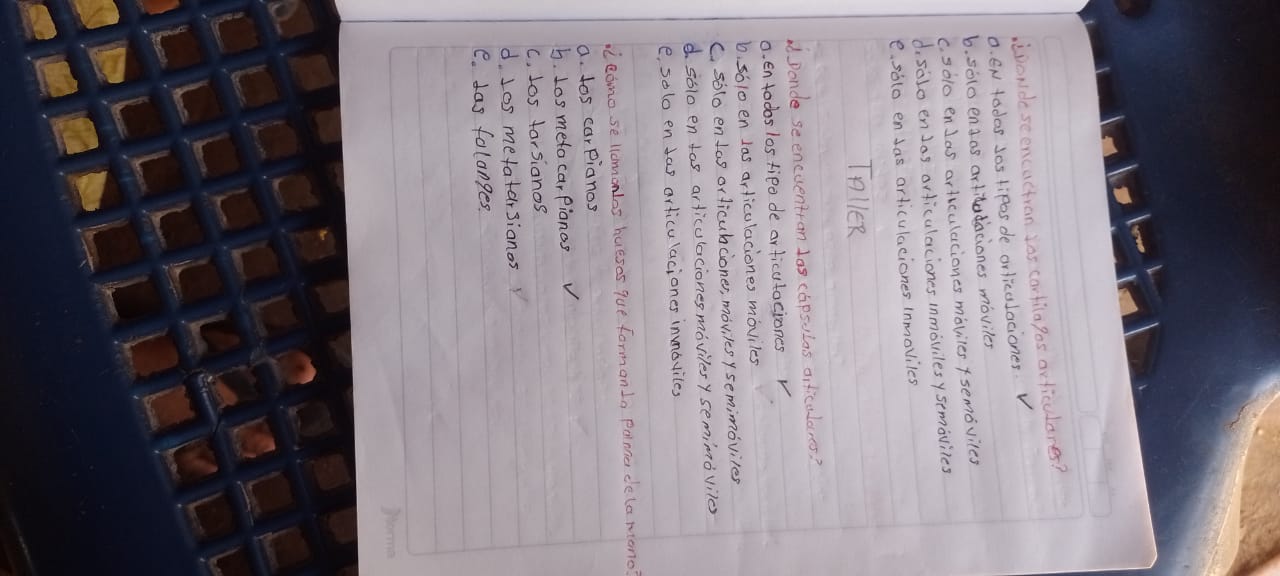 ¿Donde se encuentran los cartilagos articulares?
a. EN todos los tipos de articulaciones. ✓
b. sólo en las articulaciones móviles
c. sólo en las articulaciones móviles y semóviles
d. sólo en las articulaciones inmóviles y semóviles
e. sólo en las articulaciones Inmoviles
TALLER
¿Donde se encuentran las cápsulas articulares?
a. En todos los tipo de articulaciones ✓
b. sólo en las articulaciones móviles
c. sólo en las articulaciones, móviles y semimóviles
d. sólo en las articulaciones móviles y semimóviles
e. solo en las articulaciones inmóviles
¿cómo se llaman los huesos que forman la palma de la mano?
a. los carpianos
b. los metacarpianos ✓
c. los tarsianos
d. los metatarsianos ✓
e. las falanges.
Norma